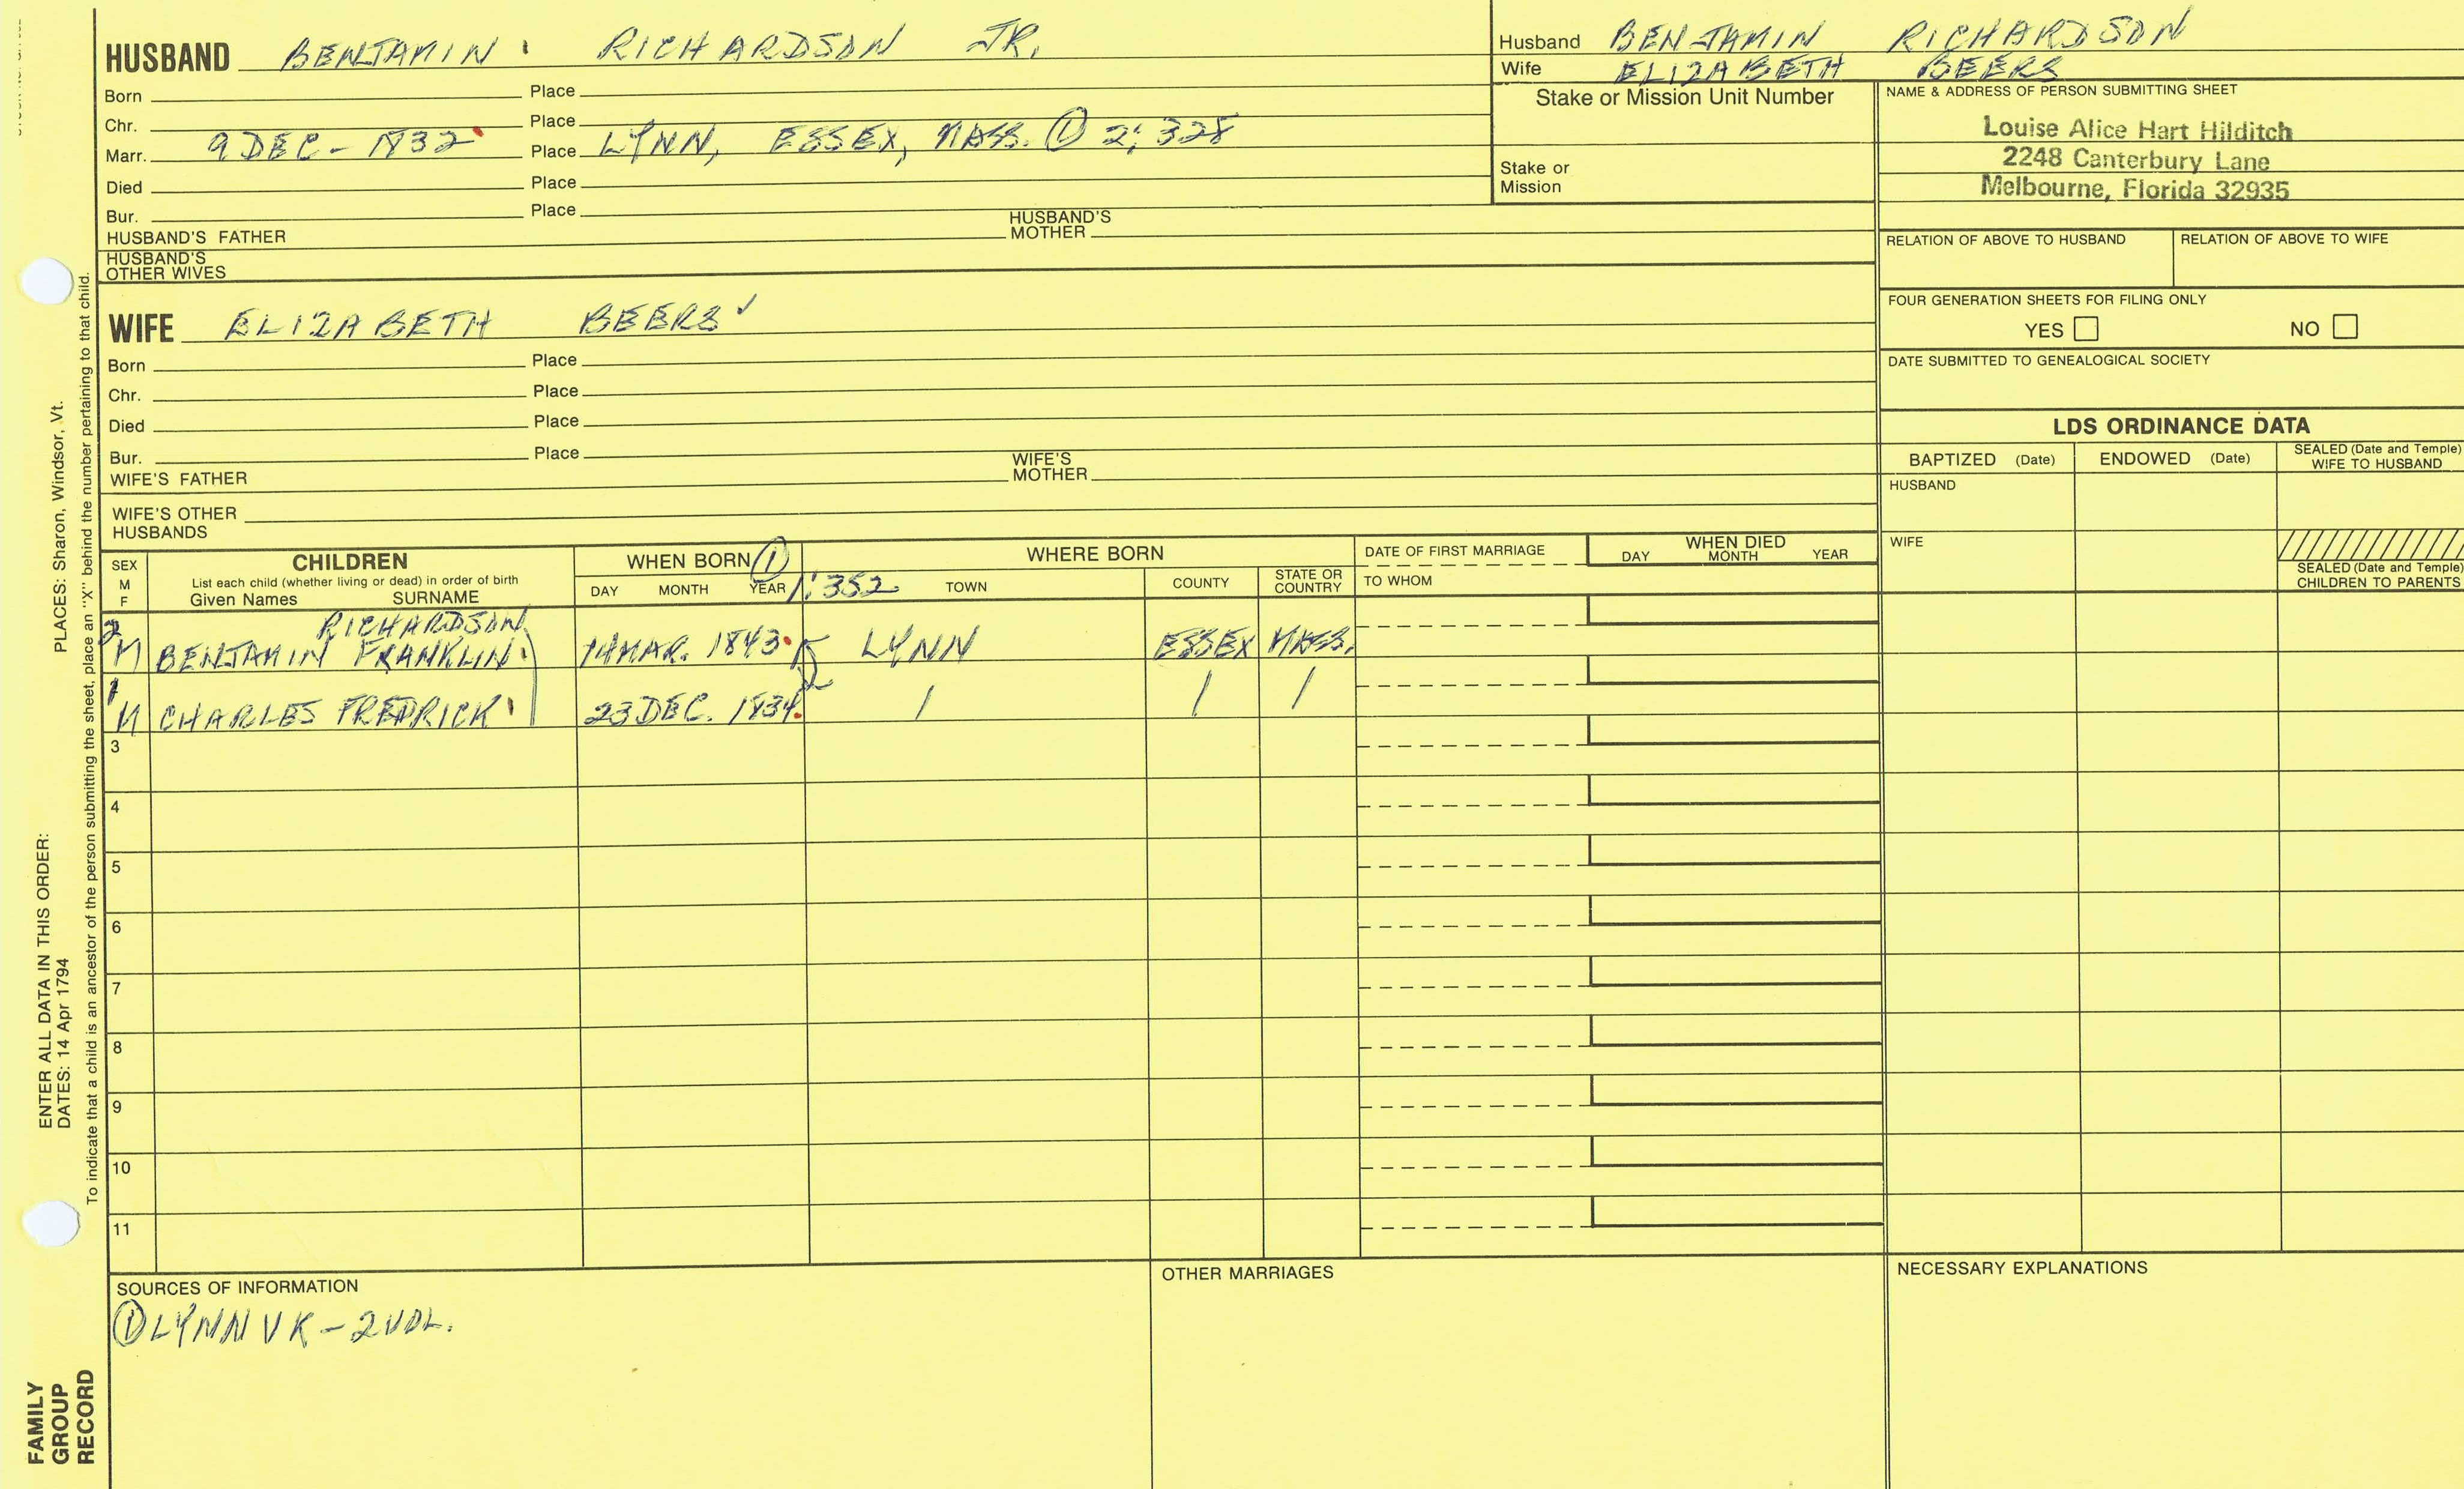 HUSBAND BENJAMIN RICHARDSON JR.
Born Place
Chr. Place
Marr. 9 DEC - 1832 Place LYNN, ESSEX, MASS. ① 2: 328
Died Place
Bur. Place
HUSBAND'S FATHER HUSBAND'S MOTHER
HUSBAND'S OTHER WIVES
Husband BENJAMIN RICHARDSON
Wife ELIZABETH BEERS
Stake or Mission Unit Number
Stake or Mission
NAME & ADDRESS OF PERSON SUBMITTING SHEET
Louise Alice Hart Hilditch
2248 Canterbury Lane
Melbourne, Florida 32935
RELATION OF ABOVE TO HUSBAND RELATION OF ABOVE TO WIFE
FOUR GENERATION SHEETS FOR FILING ONLY
YES NO
DATE SUBMITTED TO GENEALOGICAL SOCIETY
WIFE ELIZABETH BEERS ✓
Born Place
Chr. Place
Died Place
Bur. Place
WIFE'S FATHER WIFE'S MOTHER
WIFE'S OTHER HUSBANDS
LDS ORDINANCE DATA
BAPTIZED (Date) ENDOWED (Date) SEALED (Date and Temple) WIFE TO HUSBAND
HUSBAND
WIFE
SEALED (Date and Temple) CHILDREN TO PARENTS
SEX M F
CHILDREN
List each child (whether living or dead) in order of birth
Given Names SURNAME
WHEN BORN ① 1:352
DAY MONTH YEAR
WHERE BORN
TOWN COUNTY STATE OR COUNTRY
DATE OF FIRST MARRIAGE
TO WHOM
WHEN DIED
DAY MONTH YEAR
RICHARDSON
2 M BENJAMIN FRANKLIN 14 MAR. 1843 LYNN ESSEX MASS.
1 M CHARLES FREDRICK 23 DEC. 1834 / / /
3
4
5
6
7
8
9
10
11
SOURCES OF INFORMATION
① LYNN VR - 2 VOL.
OTHER MARRIAGES
NECESSARY EXPLANATIONS
PLACES: Sharon, Windsor, Vt.
ENTER ALL DATA IN THIS ORDER:
DATES: 14 Apr 1794
To indicate that a child is an ancestor of the person submitting the sheet, place an "X" behind the number pertaining to that child.
FAMILY
GROUP
RECORD